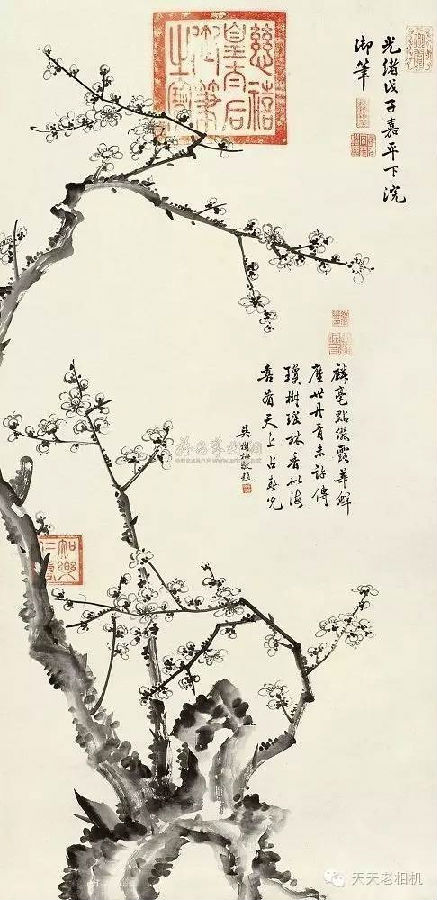 光緒戊子嘉平下浣
御筆
慈禧
皇太后
御筆
之寶
麟毫點綴露華鮮
塵世丹青未許傳
瓊樹瑤林香似海
喜看天上占春先
吳樹梅敬題
天天老相机